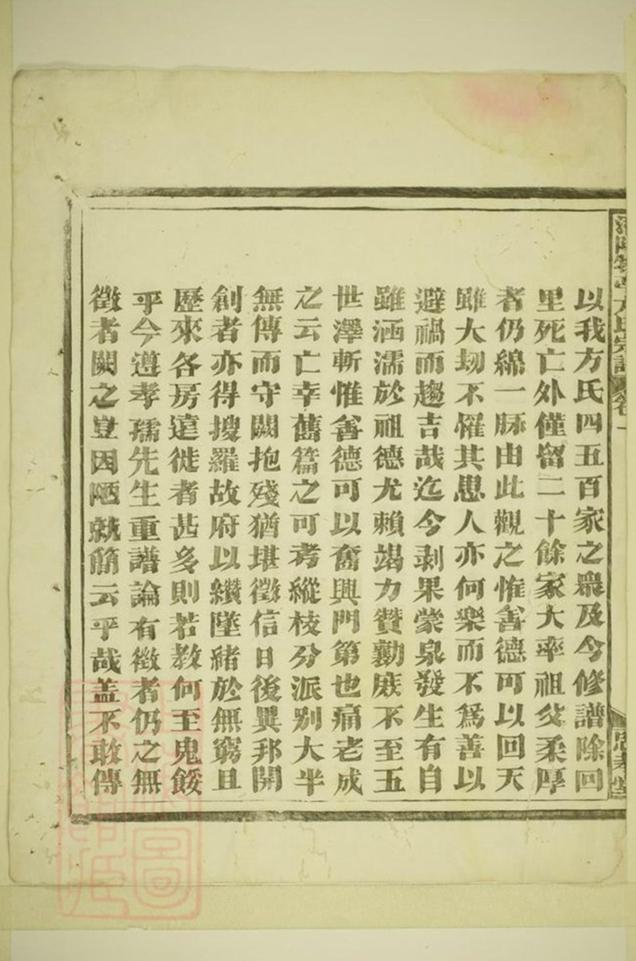 以我方氏四五百家之衆及今修譜除回
里死亡外僅留二十餘家大率祖父柔厚
者仍綿一脉由此觀之惟善德可以回天
雖大刼不懼其患人亦何樂而不爲善以
避禍而趨吉哉迄今剥果蒙泉發生有自
雖涵濡於祖德尤賴竭力贊勷庶不至五
世澤斬惟善德可以奮興門第也痛老成
之云亡幸舊篇之可考縱枝分派別大半
無傳而守闕抱殘猶堪徵信日後異邦開
創者亦得搜羅故府以纘墜緒於無窮且
歷來各房遠徙者甚多則若敖何至鬼餒
乎今遵孝孺先生重譜論有徵者仍之無
徵者闕之豈因陋就簡云乎哉盖不敢傳
方氏宗譜 卷一